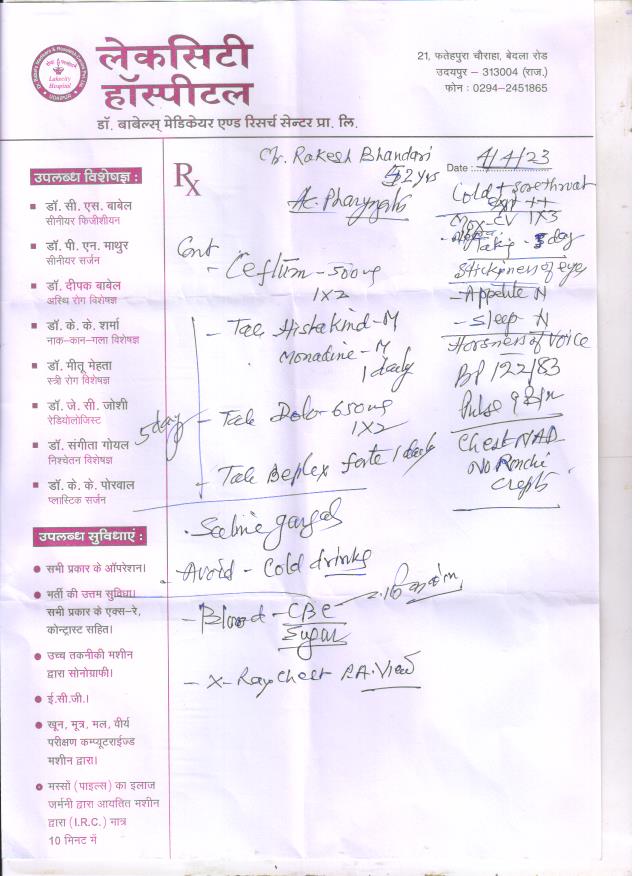 लेकसिटी
हॉस्पीटल
डॉ. बाबेल्स् मेडिकेयर एण्ड रिसर्च सेन्टर प्रा. लि.
Lakecity
Hospital
21, फतेहपुरा चौराहा, बेदला रोड
उदयपुर – 313004 (राज.)
फोन : 0294–2451865
Rx
Mr. Rakesh Bhandari
52 yrs
Date : 4/4/23
Ac. Pharyngitis
Cold + sore throat
Mox-CV 1X3
Taking - 3 day
Stickiness of eye
- Appetite N
- Sleep - N
Horsness of Voice
BP 122/83
Pulse
Chest NAD
No Ronchi
crepts
Cont
- Ceftum - 500mg
1X2
- Tab Histakind-M
- M
1 daily
5 day
- Tab Dolo 650mg
1X2
- Tab Beplex forte 1 daily
. Saline gargles
- Avoid - Cold drinks
- Blood - CBC
Sugar
- X-Ray Chest P.A. View
उपलब्ध विशेषज्ञ :
डॉ. सी. एस. बाबेल
सीनीयर फिजीशीयन
डॉ. पी. एन. माथुर
सीनीयर सर्जन
डॉ. दीपक बाबेल
अस्थि रोग विशेषज्ञ
डॉ. के. के. शर्मा
नाक–कान–गला विशेषज्ञ
डॉ. मीतू मेहता
स्त्री रोग विशेषज्ञ
डॉ. जे. सी. जोशी
रेडियोलोजिस्ट
डॉ. संगीता गोयल
निश्चेतन विशेषज्ञ
डॉ. के. के. पोरवाल
प्लास्टिक सर्जन
उपलब्ध सुविधाएं :
सभी प्रकार के ऑपरेशन।
भर्ती की उत्तम सुविधा।
सभी प्रकार के एक्स–रे,
कोन्ट्रास्ट सहित।
उच्च तकनीकी मशीन
द्वारा सोनोग्राफी।
ई.सी.जी.।
खून, मूत्र, मल, वीर्य
परीक्षण कम्प्यूटराईज्ड
मशीन द्वारा।
मस्सों (पाइल्स) का इलाज
जर्मनी द्वारा आयतित मशीन
द्वारा (I.R.C.) मात्र
10 मिनट में